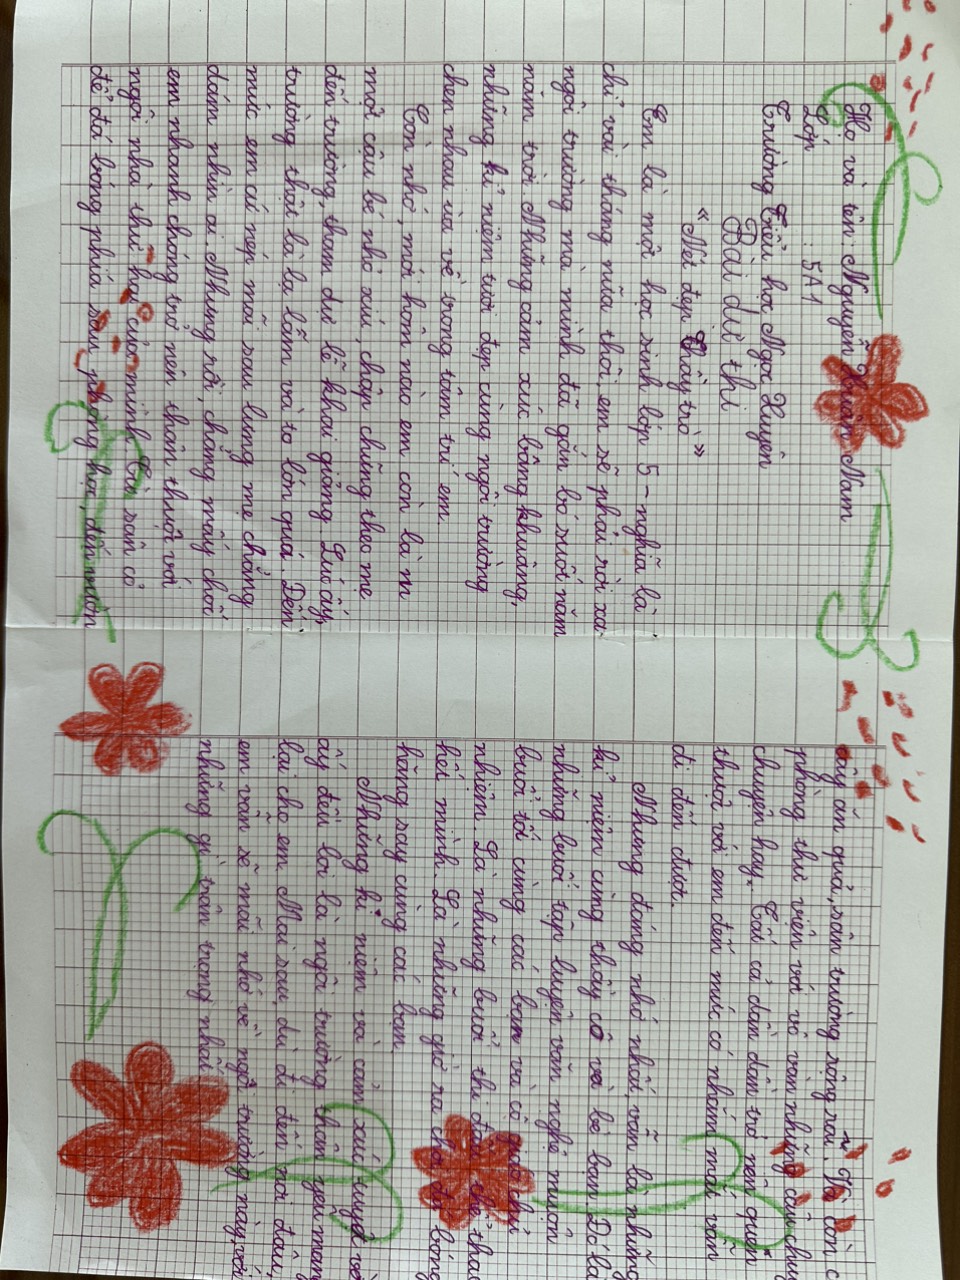 Họ và tên: Nguyễn Xuân Nam
Lớp : 5A1
Trường Tiểu học Ngọc Xuyên
Bài dự thi
"Nét đẹp Thầy trò"
Em là một học sinh lớp 5 - nghĩa là
chỉ vài tháng nữa thôi, em sẽ phải rời xa
ngôi trường mà mình đã gắn bó suốt năm
năm trời. Những cảm xúc bâng khuâng,
những kỉ niệm tươi đẹp cùng ngôi trường
chen nhau ùa về trong tâm trí em.
Còn nhớ, mới hôm nào em còn là
một cậu bé nhỏ xíu, chập chững theo mẹ
đến trường, tham dự lễ khai giảng. Lúc ấy,
trường thật là lạ lẫm và to lớn quá. Đến
mức em cứ nép mãi sau lưng mẹ chẳng
dám nhìn ai. Nhưng rồi, chẳng mấy chốc
em nhanh chóng trở nên thân thuộc với
ngôi nhà thứ hai của mình. Từ sân cỏ
để đá bóng phía sau phòng học, đến vườn
cây ăn quả, sân trường rộng rãi. Và còn c
phòng thư viện với vô vàn những câu chu
chuyện hay. Tất cả dần dần trở nên quen
thuộc với em đến mức có nhắm mắt vẫn
đi đến được.
Nhưng đáng nhớ nhất, vẫn là những
kỉ niệm cùng thầy cô và bè bạn. Đó là
những buổi tập luyện văn nghệ muộn
buổi tối cùng các bạn và cô giáo chủ
nhiệm. Là những buổi thi đấu thể thao
hết mình. Là những giờ ra chơi đá bóng
hăng say cùng các bạn.
Những kỉ niệm và cảm xúc tuyệt vời
ấy đều bởi là ngôi trường thân yêu mang
lại cho em. Mai sau, dù đi đến nơi đâu,
em vẫn sẽ mãi nhớ về ngôi trường này, với
những gì trân trọng nhất.